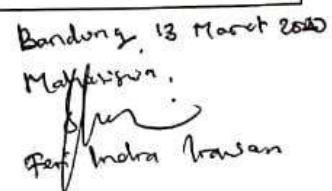 Bandung, 13 Maret 2020
Mahasiswa,
Feri Indra Irawan